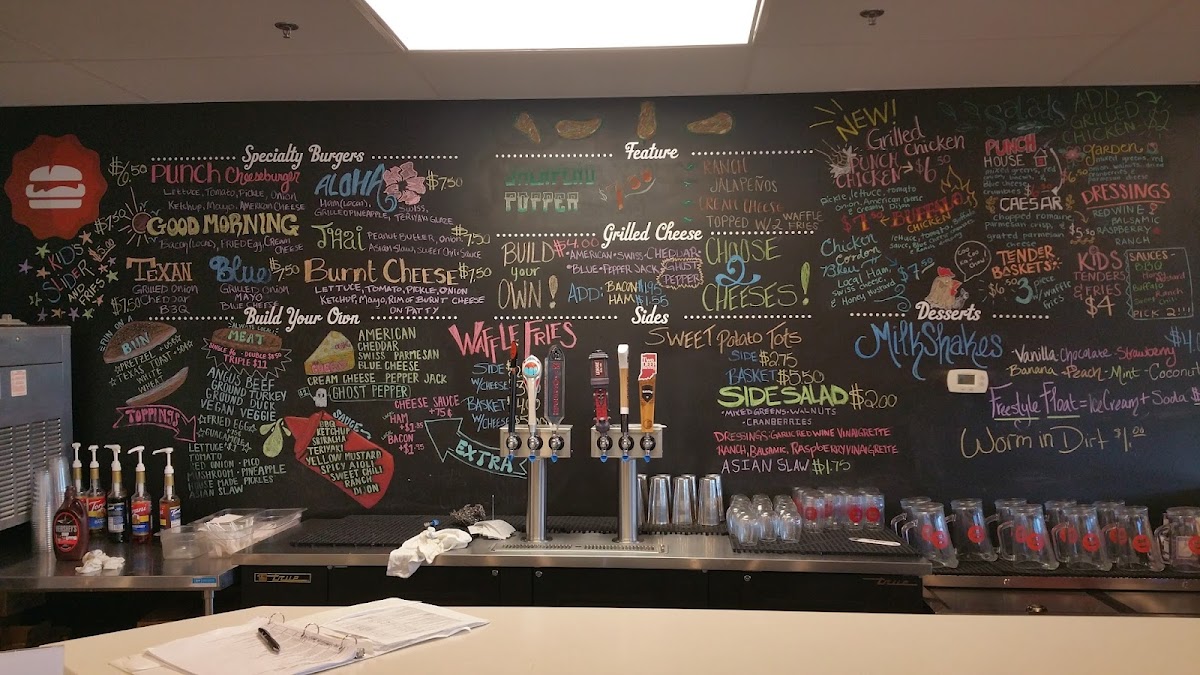 Specialty Burgers
$6.50 PUNCH Cheeseburger
Lettuce, Tomato, Pickle, Onion
Ketchup, Mayo, American Cheese
ALOHA $7.50
Ham (Local), Swiss,
Grilled Pineapple, Teriyaki Glaze
$7.50 GOOD MORNING
Bacon (Local), Fried Egg, Cream
Cheese
Thai Peanut Butter, Onion, $7.50
Asian Slaw, Sweet Chili Sauce
KIDS
SLIDER
AND
FRIES
$7.50
TEXAN
Grilled Onion
Cheddar
BBQ
Blue $7.50
Grilled Onion
MAYO
Blue Cheese
Burnt Cheese $7.50
LETTUCE, TOMATO, PICKLE, ONION
Ketchup, Mayo, Rim of BURNT CHEESE
ON PATTY
Build Your Own
BUN
PRETZEL
TEXAS TOAST
WHEAT
ALWAYS LOCAL!
MEAT
TRIPLE $11
ANGUS BEEF
GROUND TURKEY
VEGAN VEGGIE
AMERICAN
CHEDDAR
SWISS PARMESAN
BLUE CHEESE
CREAM CHEESE PEPPER JACK
GHOST PEPPER
TOPPINGS
FRIED EGG
GUACAMOLE
LETTUCE
TOMATO
RED ONION - PICO
MUSHROOM - PINEAPPLE
HOUSE MADE PICKLES
ASIAN SLAW
SAUCE
BBQ
KETCHUP
SRIRACHA
TERIYAKI
YELLOW MUSTARD
SPICY AIOLI
SWEET CHILI
RANCH
DIJON
CHEESE SAUCE
+75¢
HAM
+$1.55
BACON
+$1.95
EXTRA
Feature
JALAPEÑO
POPPER
RANCH
JALAPEÑOS
CREAM CHEESE
TOPPED W/2 WAFFLE
FRIES
Grilled Cheese
BUILD $4.00
your
OWN!
•AMERICAN•SWISS•CHEDDAR
•BLUE•PEPPER JACK
GHOST
PEPPER
ADD: BACON $1.95
HAM $1.55
CHOOSE
2
CHEESES!
Sides
WAFFLE FRIES
SIDE
W/CHEESE
BASKET
W/CHEESE
SWEET Potato Tots
SIDE $2.75
BASKET $5.50
SIDE SALAD $2.00
•MIXED GREENS•WALNUTS
•CRANBERRIES
DRESSINGS: GARLIC RED WINE VINAIGRETTE
RANCH, BALSAMIC, RASPBERRY VINAIGRETTE
ASIAN SLAW $1.75
NEW!
Grilled
Chicken
PUNCH
CHICKEN $6.50
Pickle, lettuce, tomato
Onion, American cheese
& creamy Dijon
BUFFALO
CHICKEN
Chicken
Cordon
Bleu $7.50
Local Ham,
Swiss Cheese
& Honey Mustard
TENDER
BASKETS:
$6.50 3 piece
w/ waffle
fries
Salads
ADD
GRILLED
CHICKEN $2
PUNCH
HOUSE
mixed greens, red
CAESAR
chopped romaine
parmesan crisp, &
grated parmesan
cheese
Garden
DRESSINGS
RED WINE
BALSAMIC
RASPBERRY
RANCH
KIDS
TENDERS
& FRIES
$4
SAUCES
BBQ
Buffalo
Ranch
PICK 2!!!
Desserts
MilkShakes
Vanilla Chocolate Strawberry
Banana - Peach - Mint - Coconut
Freestyle Float = Ice Cream + Soda
Worm in Dirt $1.00
HERSHEY'S
Torani
True